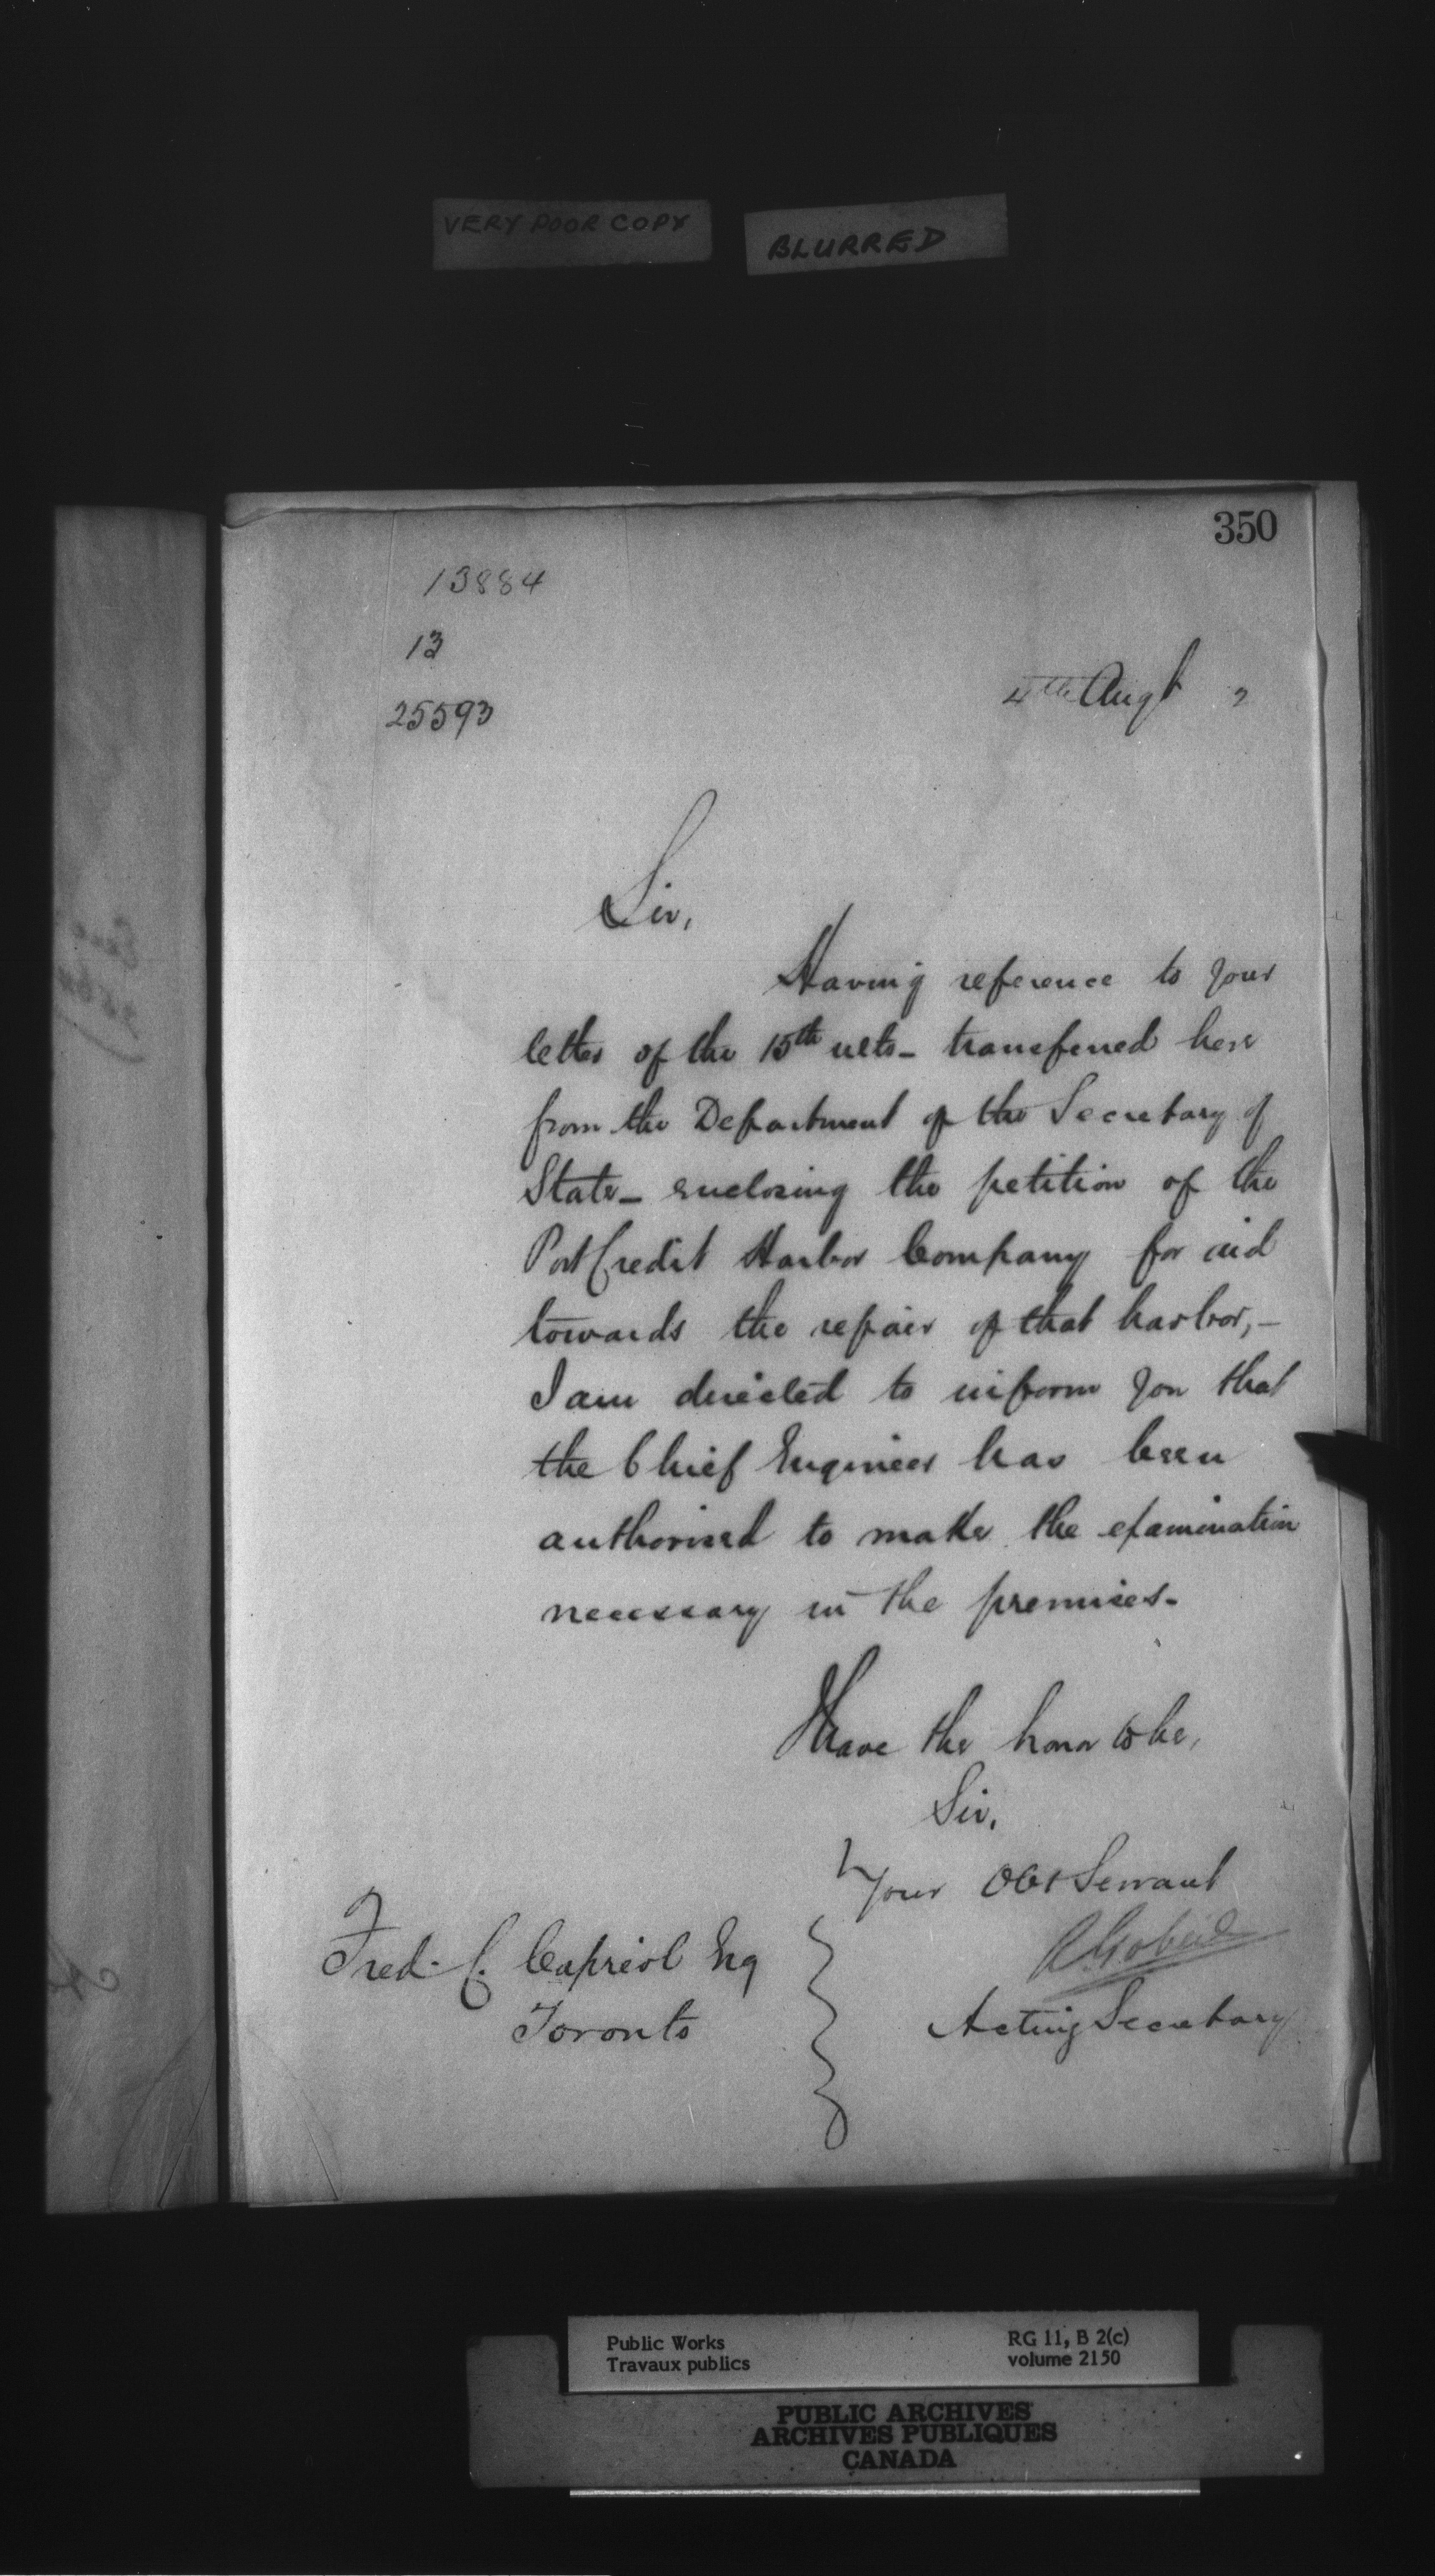 VERY POOR COPY
BLURRED
350
13884
13
25593
4th Augt 2
Sir,
Having reference to your
letter of the 15th ulto_ transferred here
from the Department of the Secretary of
State_ enclosing the petition of the
Port Credit Harbor Company for aid
towards the repair of that harbor,_
I am directed to inform you that
the Chief Engineer has been
authorised to make the examination
necessary in the premises_
I have the honor to be,
Sir,
Your Obt Servant
Fred. C. Capreol Esq
Toronto
Acting Secretary
Public Works
Travaux publics
RG 11, B 2(c)
volume 2150
PUBLIC ARCHIVES
ARCHIVES PUBLIQUES
CANADA